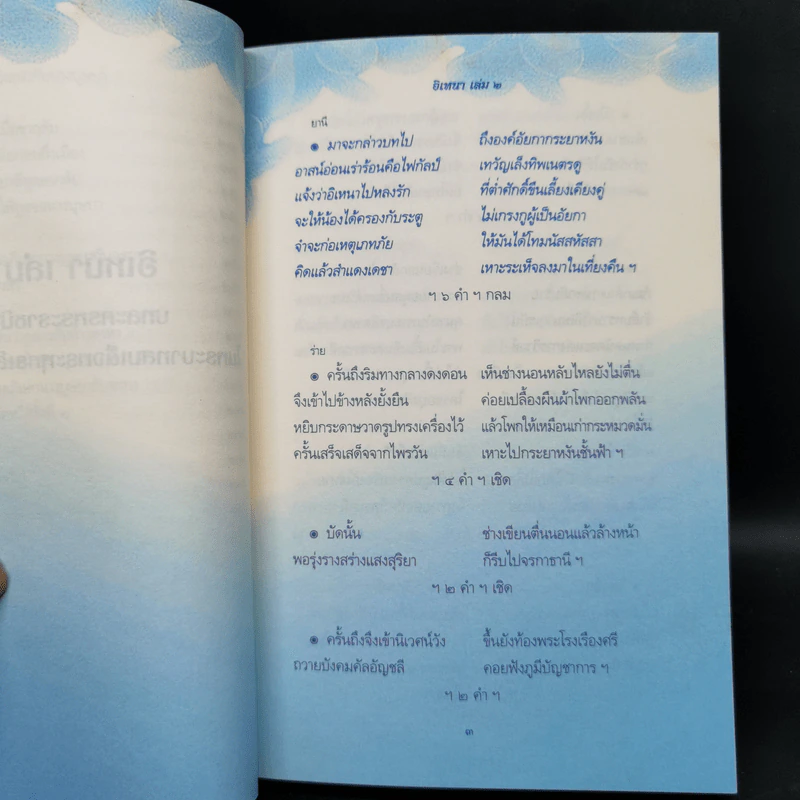 อิเหนา เล่ม ๒
ยานี
๏ มาจะกล่าวบทไป ถึงองค์อัยกากระยาหงัน
อาสน์อ่อนเร่าร้อนคือไฟกัลป์ เทวัญเล็งทิพเนตรดู
แจ้งว่าอิเหนาไปหลงรัก ที่ต่ำศักดิ์ขืนเลี้ยงเคียงคู่
จะให้น้องได้ครองกับระตู ไม่เกรงกูผู้เป็นอัยกา
จำจะก่อเหตุเภทภัย ให้มันได้โทมนัสสหัสสา
คิดแล้วสำแดงเดชา เหาะระเห็จลงมาในเที่ยงคืน ฯ
ฯ ๖ คำ ฯ กลม
ร่าย
๏ ครั้นถึงริมทางกลางดงด่อน เห็นช่างนอนหลับไหลยังไม่ตื่น
จึงเข้าไปข้างหลังยั้งยืน ค่อยเปลื้องผืนผ้าโพกออกพลัน
หยิบกระดาษวาดรูปทรงเครื่องไว้ แล้วโพกให้เหมือนเก่ากระหมวดมั่น
ครั้นเสร็จเสด็จจากไพรวัน เหาะไปกระยาหงันชั้นฟ้า ฯ
ฯ ๔ คำ ฯ เชิด
๏ บัดนั้น ช่างเขียนตื่นนอนแล้วล้างหน้า
พอรุ่งรางสร่างแสงสุริยา ก็รีบไปจรกาธานี ฯ
ฯ ๒ คำ ฯ เชิด
๏ ครั้นถึงจึงเข้านิเวศน์วัง ขึ้นยังท้องพระโรงเรืองศรี
ถวายบังคมคัลอัญชลี คอยฟังภูมีบัญชาการ ฯ
ฯ ๒ คำ ฯ
๓